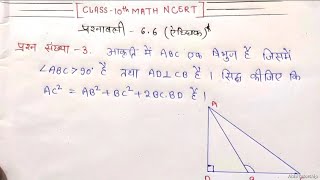 CLASS-10th MATH NCERT
प्रश्नावली - 6.6 (ऐच्छिक)*
प्रश्न संख्या -3. आकृति में ABC एक त्रिभुज है जिसमें
∠ABC > 90° है तथा AD⊥CB है । सिद्ध कीजिए कि
AC² = AB² + BC² + 2BC.BD है ।
A
D B